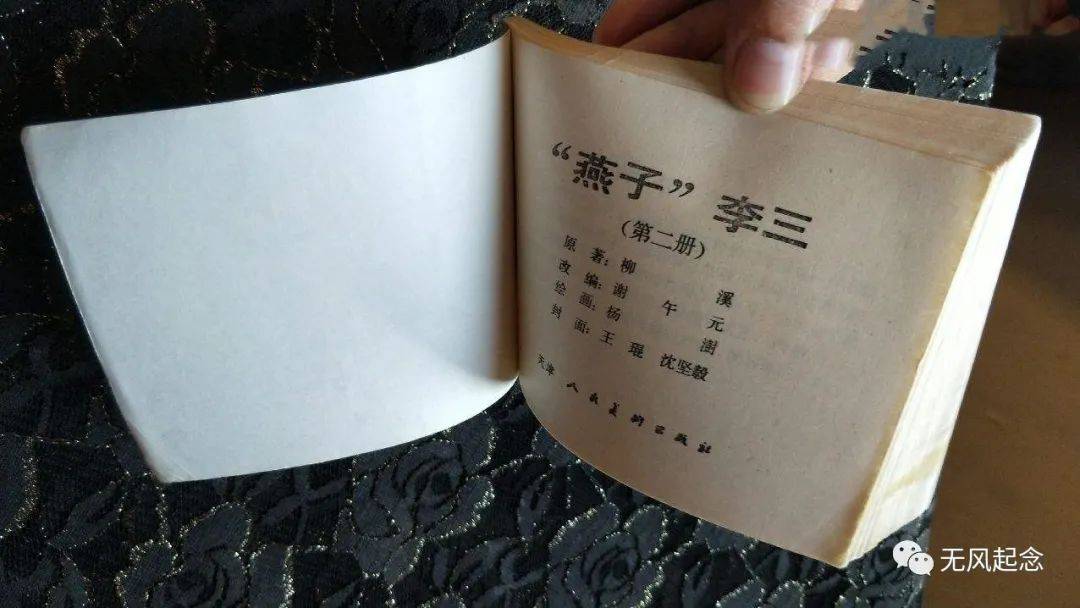 “燕子”李三
(第二册)
原著:柳溪
改编:谢午元
绘画:杨澍
封面:王琨 沈坚毅
天津人民美術出版社
无风起念